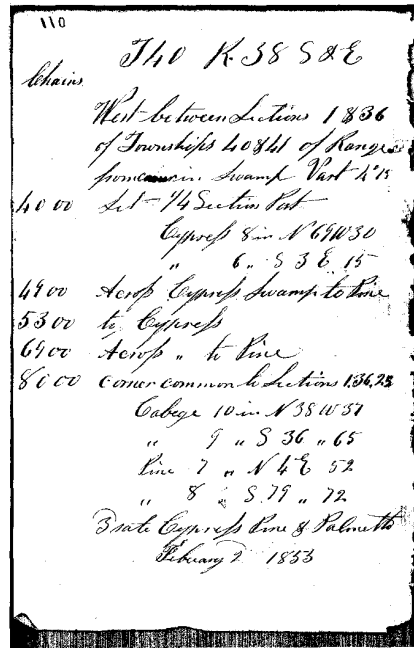 110
T40 R. 38 S & E
Chains
West between Sections 1 & 36
of Townships 40 & 41 of Range
from in Swamp Vart 4°15
40 00 Set 1/4 Section Post
Cypress 8 in N 69 W 30
" 6 " S 3 E 15
49 00 Across Cypress Swamp to Pine
53 00 to Cypress
69 00 Across " to Pine
80 00 corner common to Sections 1.36,2 
Cabege 10 in N 38 W 51
" 9 " S 36 " 65
Pine 7 " N 4 E 52
" 8 " S 79 " 72
3 rate Cypress Pine & Palmetto
Febuary 2 1853